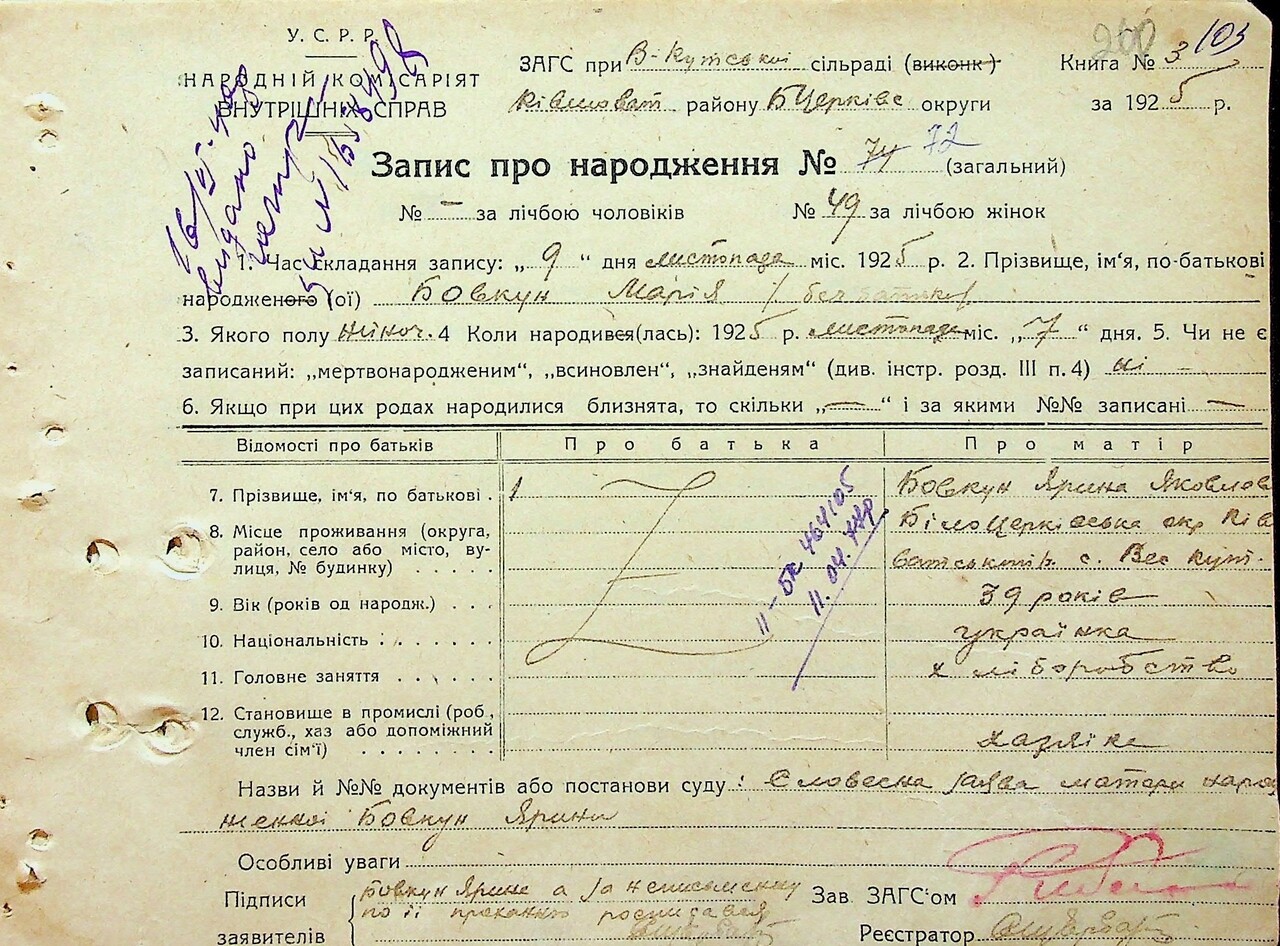 260 103
У. С. Р. Р.
НАРОДНІЙ КОМІСАРІЯТ
ВНУТРІШНІХ СПРАВ
ЗАГС при В-Кутській сільраді (виконк)
Книга № 3
району БЦерківс округи
за 1925 р.
Запис про народження № 74 72 (загальний)
№ — за лічбою чоловіків № 49 за лічбою жінок
видано
1. Час складання запису: „ 9 “ дня листопада міс. 1925 р. 2. Прізвище, ім'я, по-батькові
народженого (ої) Бовкун Марія / без батьков
3. Якого полу жіноч. 4 Коли народився(лась): 1925 р. листопада міс. „ 7 “ дня. 5. Чи не є
записаний: „мертвонародженим“, „всиновлен“, „знайденям“ (див. інстр. розд. III п. 4) ні —
6. Якщо при цих родах народилися близнята, то скільки „—“ і за якими №№ записані —
Відомості про батьків Про батька Про матір
7. Прізвище, ім'я, по батькові . Бовкун Ярина Яковлов
8. Місце проживання (округа, Білоцерківська окр Ків
район, село або місто, ву- ватський р. с. Вес Кут.
лиця, № будинку) . . . . .
II-БК 464105
11.04.
9. Вік (років од народж.) . . . 39 років
10. Національність : . . . . . . українка
11. Головне заняття . . . . . . хліборобство
12. Становище в промислі (роб.,
служб., хаз або допоміжний
член сім'ї) . . . . . . . . хазяїка
Назви й №№ документів або постанови суду : Словесна заява матери наро
женної Бовкун Ярини
Особливі уваги
Підписи
заявителів
Бовкун Ярина а за неписьменну
по її проханню росписався
Зав. ЗАГС'ом
Реєстратор